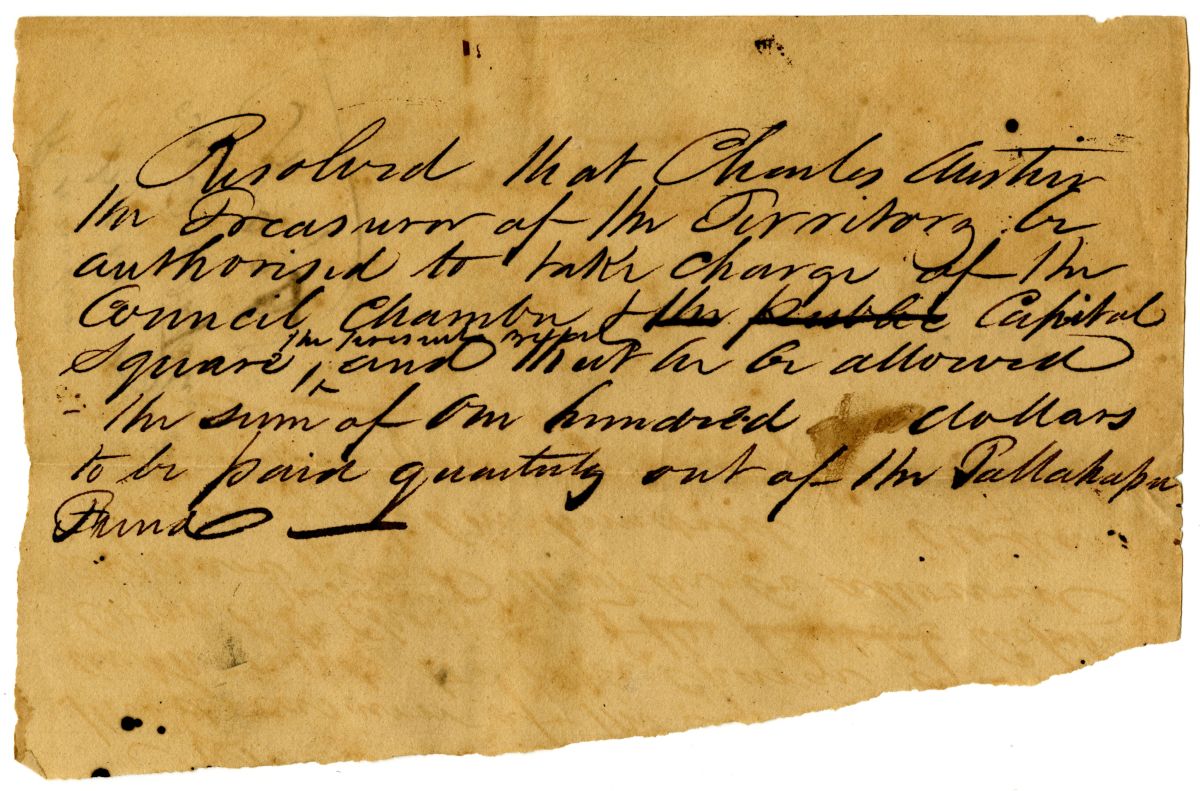 Resolved that Charles Austin
the Treasuror of the Territory be
authorised to take charge of the
Council Chamber & the public Capitol
the present
Square, and that he be allowed
the sum of One hundred dollars
to be paid quarterly out of the Tallahassee
Fund